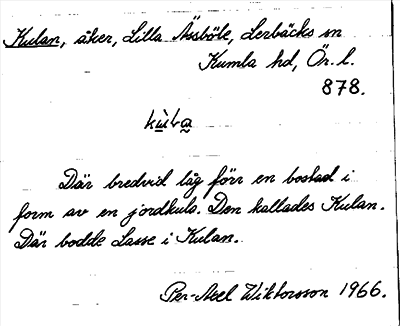 Kulan, åker, Lilla Ässböle, Lerbäcks sn
Kumla hd, Ör. l.
878.
Där bredvid låg förr en bostad i
form av en jordkula. Den kallades Kulan.
Där bodde Lasse i Kulan.
Per-Axel Wiktorsson 1966.